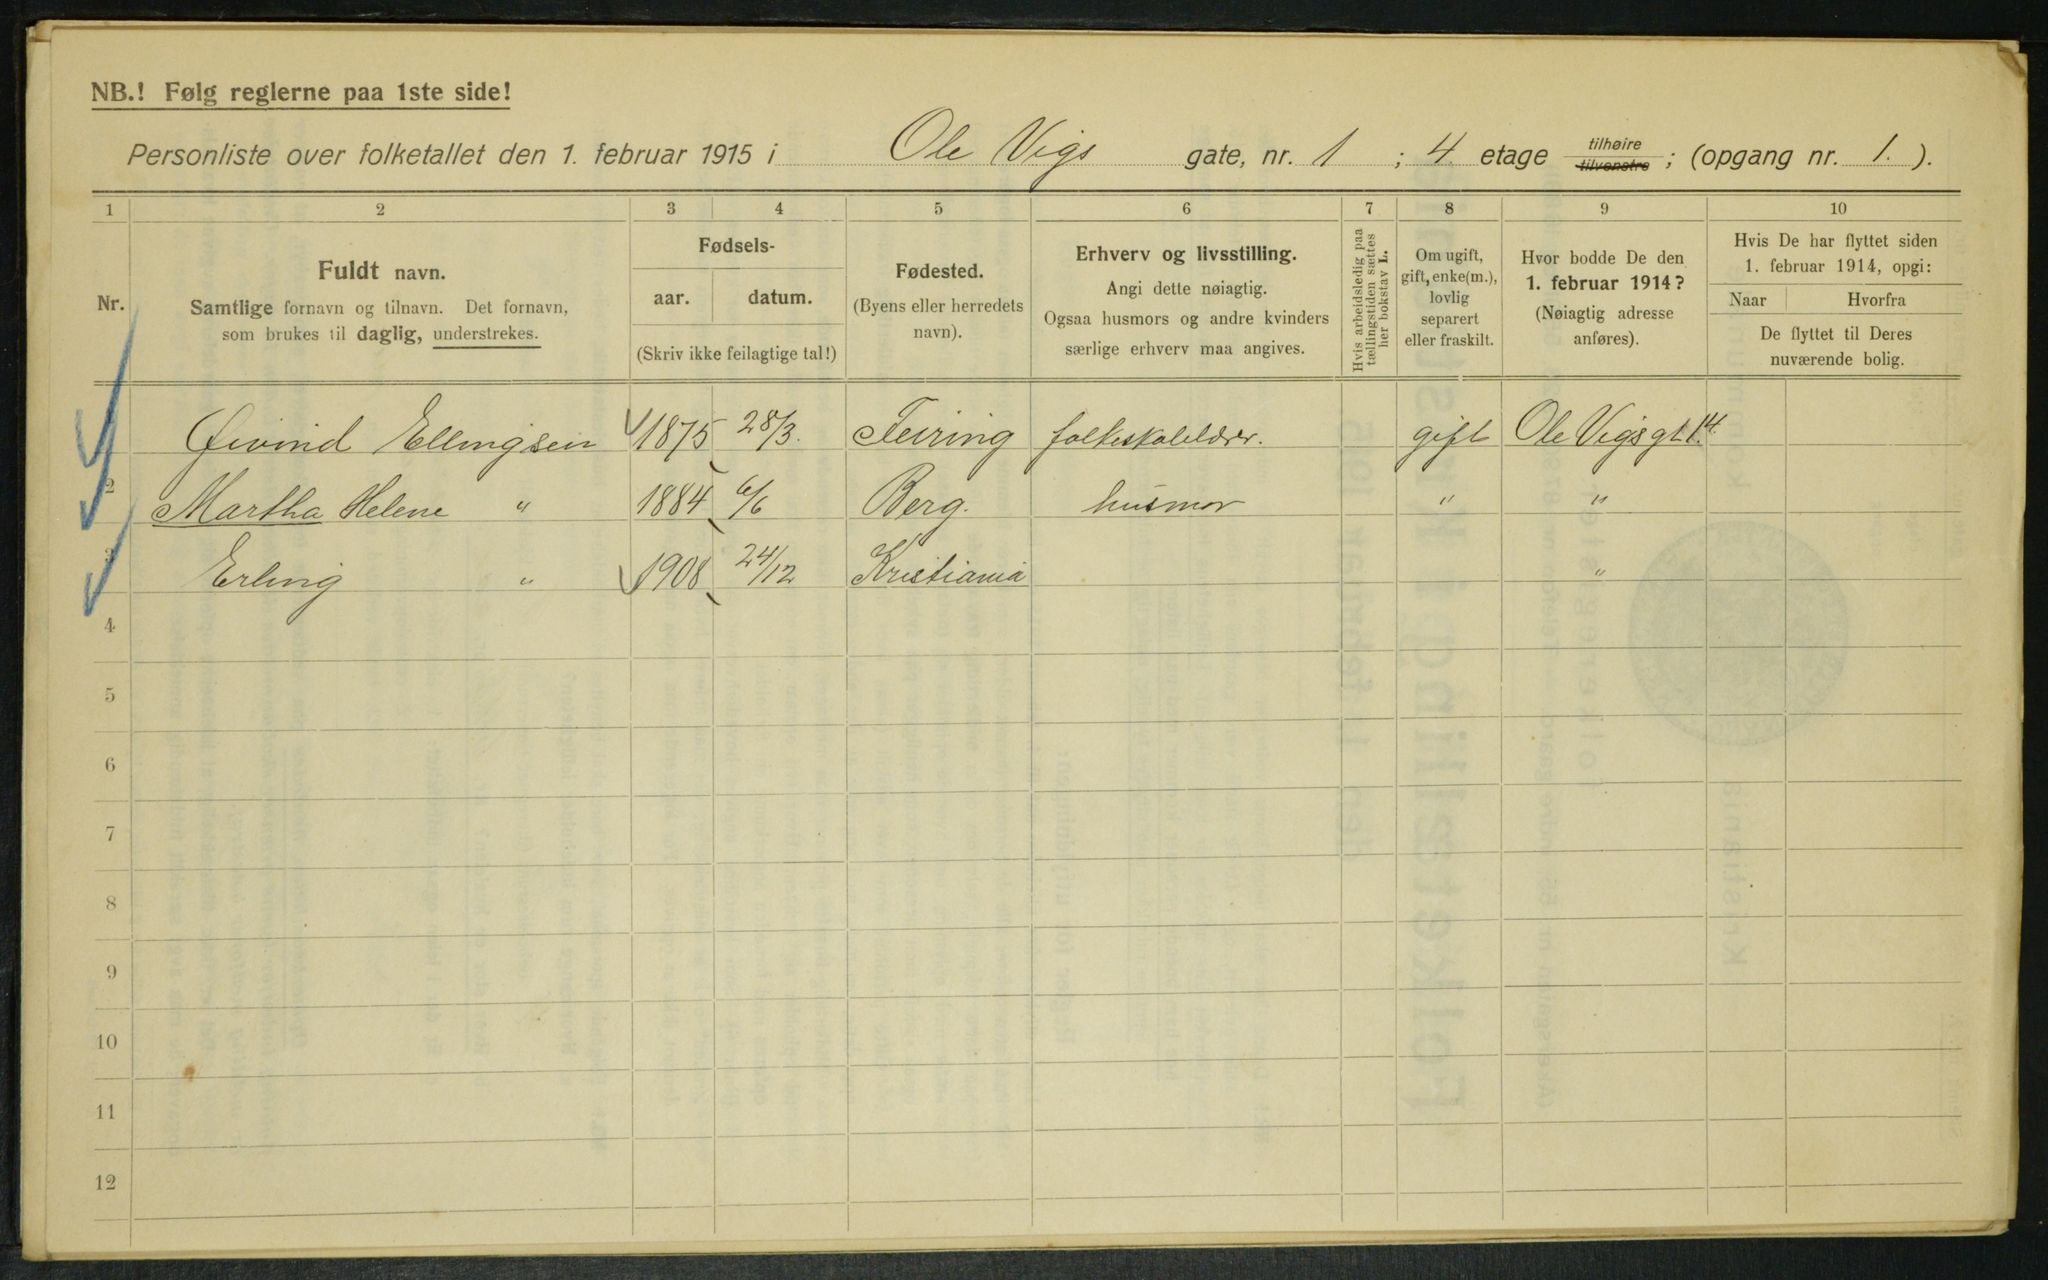 NB.! Følg reglerne paa 1ste side!
Personliste over folketallet den 1. februar 1915 i Ole Vigs gate, nr. 1 ; 4. etage tilhøire tilvenstre ; (opgang nr. 1. ).
1 2 3 4 5 6 7 8 9 10
Nr.
Fuldt navn.
Samtlige fornavn og tilnavn. Det fornavn,
som brukes til daglig, understrekes.
Fødsels-
aar. datum.
(Skriv ikke feilagtige tal!)
Fødested.
(Byens eller herredets
navn).
Erhverv og livsstilling.
Angi dette nøiagtig.
Ogsaa husmors og andre kvinders
særlige erhverv maa angives.
Hvis arbeidsledig paa
tællingstiden sættes
her bokstav L.
Om ugift,
gift, enke(m.),
lovlig
separert
eller fraskilt.
Hvor bodde De den
1. februar 1914?
(Nøiagtig adresse
anføres).
Hvis De har flyttet siden
1. februar 1914, opgi:
Naar Hvorfra
De flyttet til Deres
nuværende bolig.
Øivind Ellingsen 1875 28/3. Feiring folkeskolelærer. gift Ole Vigs gt 1.
2 Martha Helene " 1884 6/6 Berg. husmor " "
3 Erling " 1908 24/12 Kristiania "
4
5
6
7
8
9
10
11
12